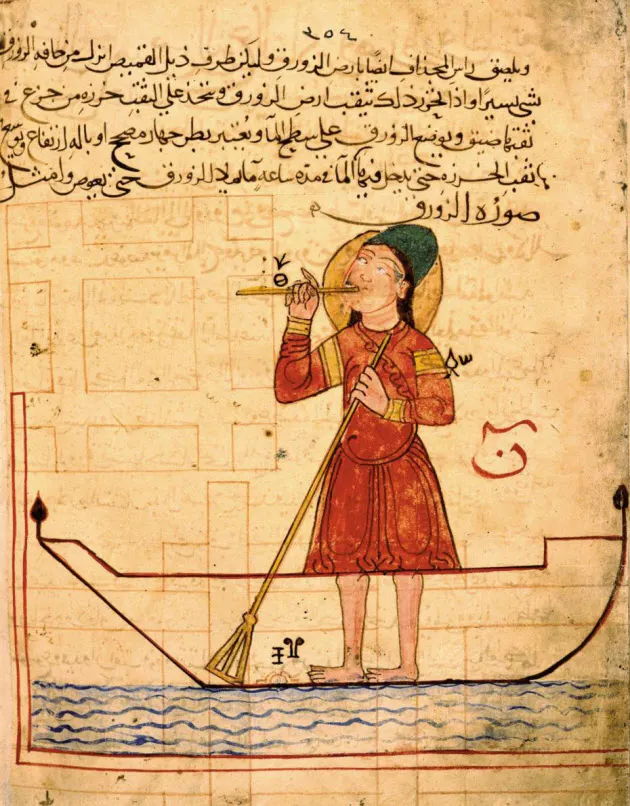 ٢٥٤
ويلصق راس المجذاف ايضا بارض الزورق وليكن طرف ذيل القميص انزل من حافه الزورق
بشي يسير واذا اتخذ ذلك تثقب ارض الزورق ويتخذ علي الثقب خرزه من جزع في
ثقبها ضيق ويوضع الزورق علي سطح الما ويعتبر بطرجهار مصحح او باله ارتفاع ويوسع
ثقب الخرزه حتي يدخل فيها الما في مده ساعه ما يملا الزورق حتي يغوص وامثل
صوره الزورق
ن